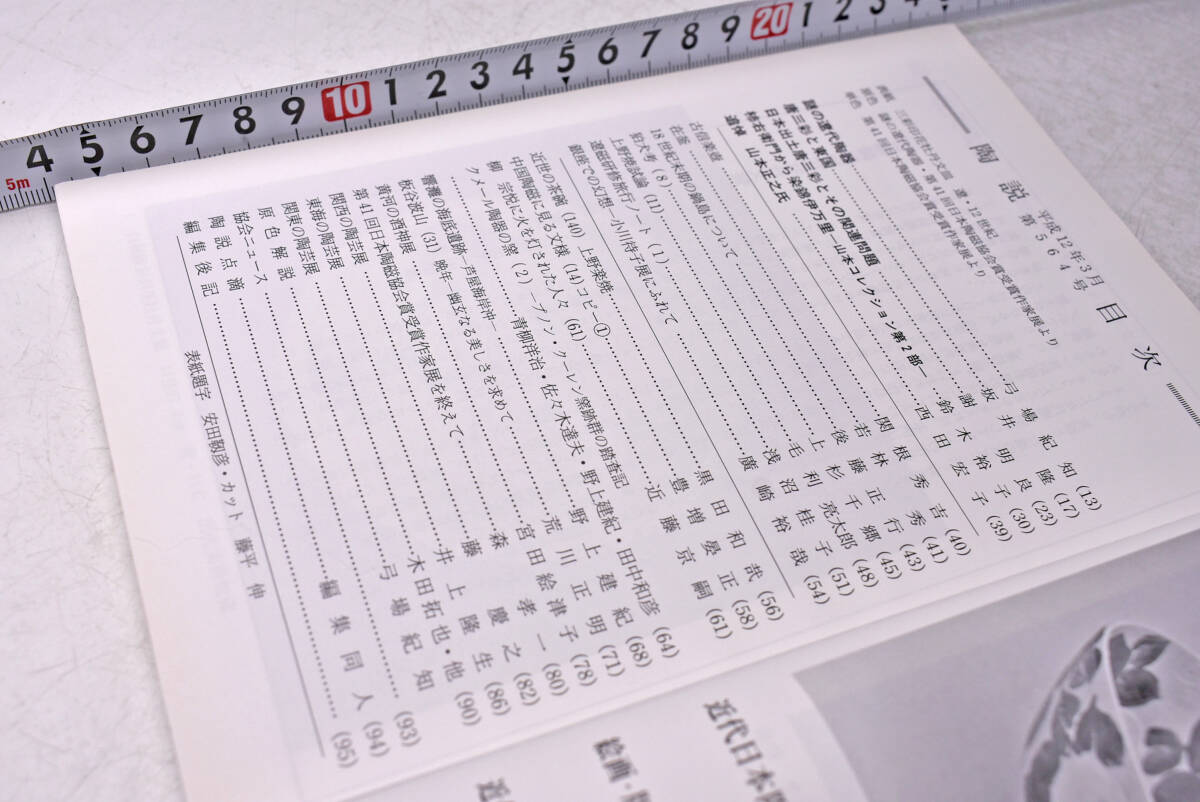 5m
4 5 6 7 8 9 10 1 2 3 4 5 6 7 8 9 20 1 2 3 4
陶説 平成12年3月 第564号 目次
表紙 三彩印花牡丹文盤 遼・12世紀
原色 謎の遼代陶器・第41回日本陶磁協会賞受賞作家展より
単色 第41回日本陶磁協会賞受賞作家展より
謎の遼代陶器……弓場紀知 (13)
唐三彩と東国……坂井隆 (17)
日本出土唐三彩とその関連問題……謝明良 (23)
柿右衛門から染錦伊万里―山本コレクション第2部―……鈴木裕子 (30)
追悼 山本正之氏……西田宏子 (39)
古信楽壺……関根秀吉 (40)
在釜……若林秀 (41)
18世紀末期の鍋島について……後藤正行 (43)
狛犬考 (8)……上杉千郷 (45)
上野焼試論 (11)……毛利亮太郎 (48)
遼磁研修旅行ノート (1)……浅沼桂子 (51)
銀座での幻想―小川待子展にふれて……廣崎裕哉 (54)
近世の茶碗 (140) 上野楽焼……黒田和哉 (56)
中国陶磁に見る文様 (14) コピー①……豊増晏正 (58)
柳 宗悦に火を灯された人々 (61)……近藤京嗣 (61)
クメール陶器の窯 (2) ―プノン・クーレン窯跡群の踏査記
青柳洋治・佐々木達夫・野上建紀・田中和彦 (64)
響灘の海底遺跡―芦屋海岸沖―……野上建紀 (68)
板谷波山 (31) 晩年―幽玄なる美しさを求めて……荒川正明 (71)
黄河の酒神展……宮田絵津子 (78)
第41回日本陶磁協会賞受賞作家展を終えて……森孝一 (80)
関西の陶芸展……藤慶之 (82)
東海の陶芸展……井上隆生 (86)
関東の陶芸展……木田拓也・他 (90)
原色解説……弓場紀知
協会ニュース…… (93)
陶説点滴……編集同人 (94)
編集後記…… (95)
表紙題字 安田靫彦・カット 藤平 伸
近代日本陶
絵画・陶
近